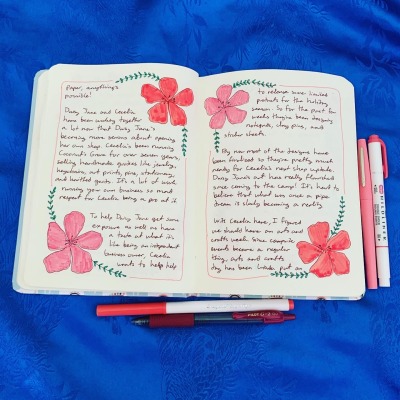 Paper, anything's
possible!
Daisy Jane and Cecelia
have been working together
a lot now that Daisy Jane's
becoming more serious about opening
her own shop. Cecelia's been running
Coconut's Grove for over seven years,
selling handmade goodies like jewelry,
keychains, art prints, pins, stationery,
and knitted goods. It's a lot of work
running your own business so mad
respect for Cecelia being a pro at it.
To help Daisy Jane get some
exposure as well as have
a taste of what it's
like being an independent
business owner, Cecelia
wants to help help
to release some limited
products for the holiday
season. So for the past few
weeks they've been designing
notepads, clay pins, and
sticker sheets.
By now most of the designs have
been finalized so they're pretty much
ready for Cecelia's next shop update.
Daisy Jane's art has really flourished
since coming to the camp! It's hard to
believe that what was once a pipe
dream is slowly becoming a reality.
With Cecelia here, I figured
we should have an arts and
crafts week. Since campsite
events became a regular
thing, arts and crafts
day has been kinda put on
MILDLINER